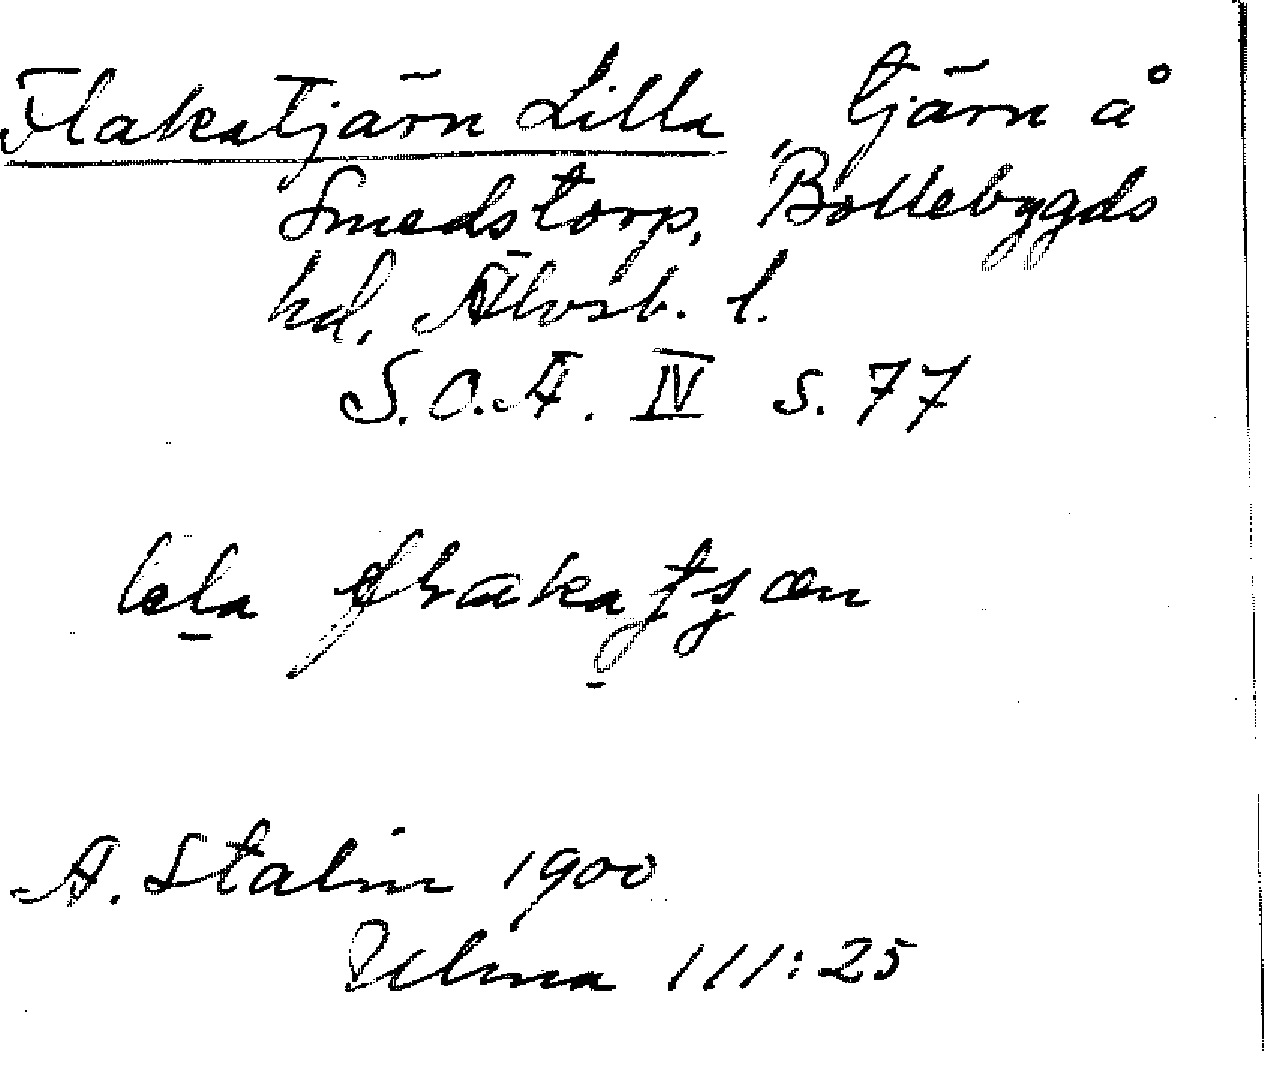 Flakatjärn Lilla, tjärn å
Smedstorp, Bollebygds
hd, Älvsb. l.
S.O.Ä. IV s. 77
A. Stalin 1900
Uuma 111:25